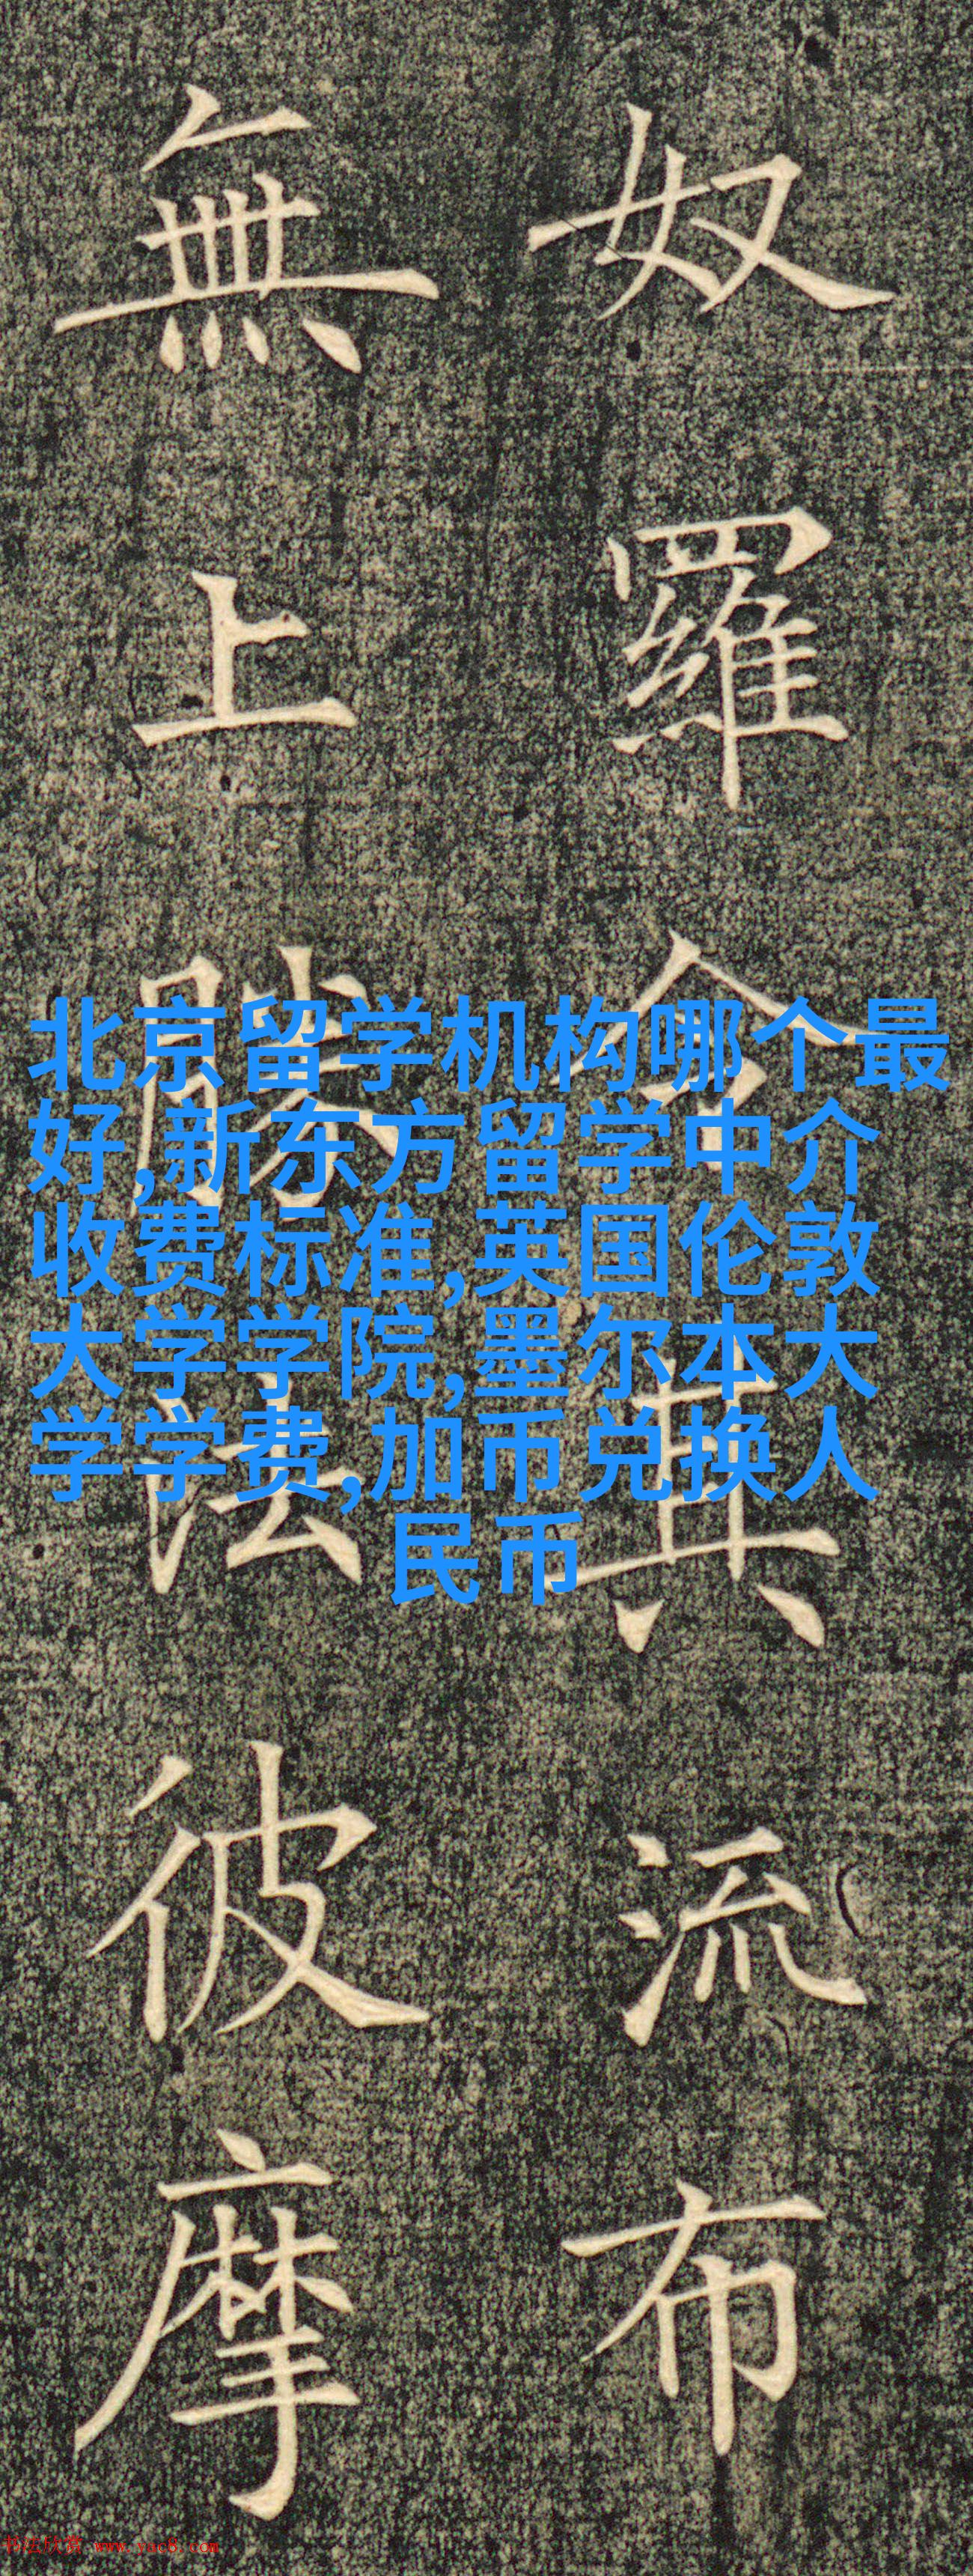 奴羅令其流布
無上勝法彼摩
北京留学机构哪个最
好,新东方留学中介
收费标准,英国伦敦
大学学院,墨尔本大
学学费,加币兑换人
民币
书法欣赏 www.yac8.com